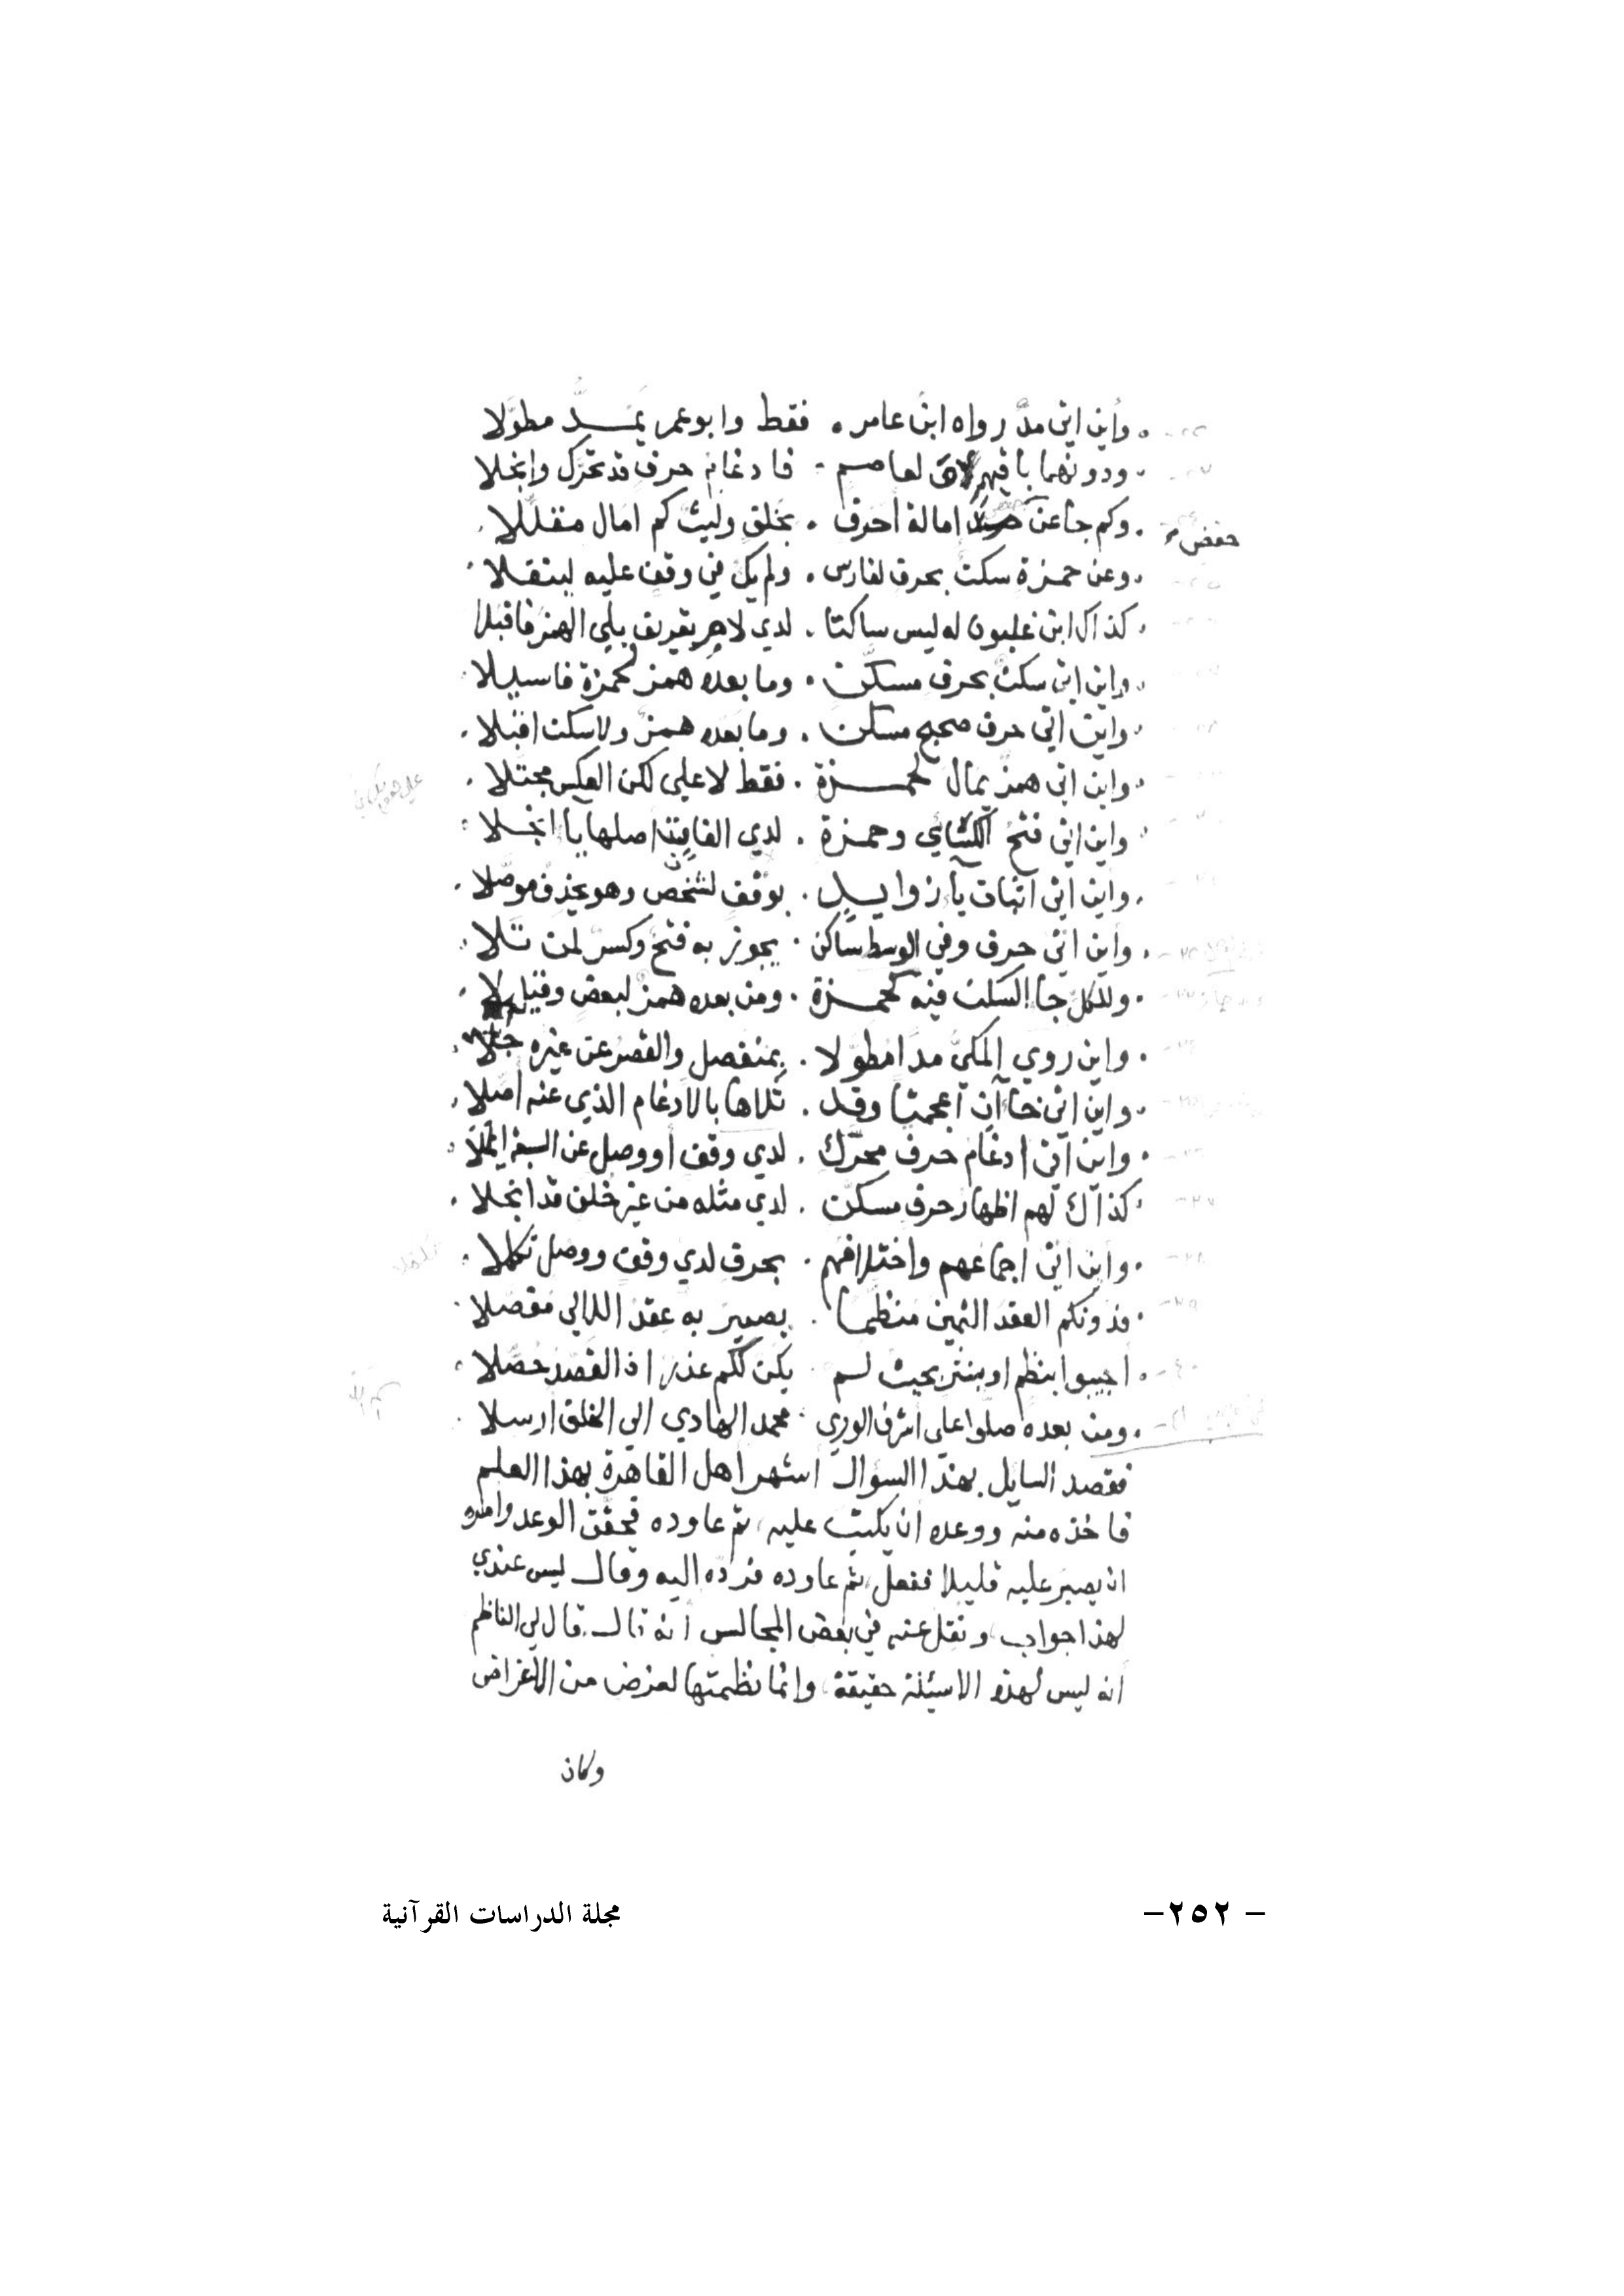 وأين اتى مدّ رواه ابن عامر . فقط وابو عمر يمـــدّ مطوّلا
ودونهما باقيهم لعاصم . فادغام حرف قد تحرّك وانجلا
وكم جا عن امالة احرف . بخلف وليث كم امال مقلّلا
حفص
وعن حمزة سكت بحرف لفارس . ولم يك في وقف عليه لينقلا
كذاك ابن غلبون له ليس ساكتا . لدي لام تعريف يلي الهمز فاقبلا
واين اتى سكت بحرف مسكّن . وما بعده همز لحمزة فاسيلا
واين اتى حرف صحيح مسكن . وما بعده همز ولا سكت اقبلا
واين اتى همز يمال لحمـــزة . فقط لا على لكن العكس مجتلا
واين اتى فتح الكسائي وحمزة . لدي الفا اصلها يا انجلا
واين اتى اثبات ياء زوايد . بوقف لشخص وهو يحذف موصلا
واين اتى حرف وفي الوسط ساكن . يجوز به فتح وكسر لمن تلا
وللكل جا السكت فيه كحمزة . ومن بعده همز لبعض
واين روي المكيّ مدا مطوّلا . بمنفصل والقصر عن غيره جلا
واين اتى أعجميا وقد . تلاها بالادغام الذي عنه اصلا
واين اتى ادغام حرف محرّك . لدي وقف او وصل عن السبعة
كذاك لهم اظهار حرف مسكن . لدي مثله من غير خلف قد انجلا
واين اتى اجماعهم واختلافهم . بحرف لدي وقف ووصل تكملا
فدونكم العقد الثمين منظما . يصير به عقد اللالي مفصلا
اجيبوا بنظم او بنثر بحيث لم . يكن لكم عذر اذ القصد حصّلا
ومن بعده صلوا على اشرف الوري . محمد الهادي الى الخلق ارسلا
فقصد السايل بهذا السؤال اشهر اهل القاهرة بهذا العلم
فاخذه منه ووعده ان يكتب عليه ثم عاوده فحقق الوعد وامره
ان يصبر عليه قليلا ففعل ثم عاوده فرده اليه وقال ليس عندي
لهذا جواب ونقل عنه في بعض المجالس انه قال قال لي الناظم
انه ليس لهذه الاسئلة حقيقة وانما نظمتها لغرض من الاغراض
وكان
مجلة الدراسات القرآنية
- ٢٥٢-